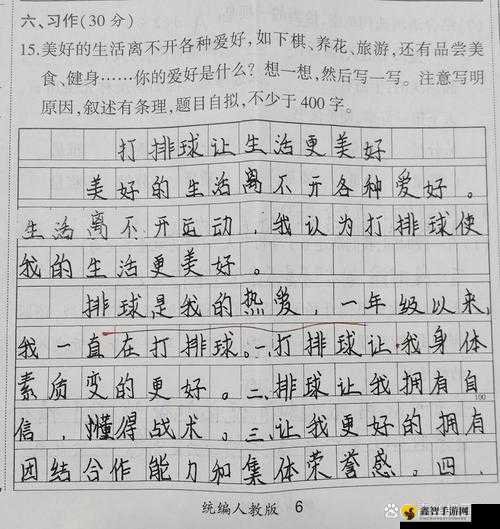 六、习作(30 分)
15.美好的生活离不开各种爱好,如下棋、养花、旅游,还有品尝美
食、健身……你的爱好是什么?想一想,然后写一写。注意写明
原因,叙述有条理,题目自拟,不少于 400 字。
打排球让生活更美好
美好的生活离不开各种爱好。
生活离不开运动,我认为打排球使
我的生活更美好。
排球是我的热爱,一年级以来,
我一直在打排球。一、打排球让我身体
素质变的更好。二、排球让我拥有自
100
信,懂得战术。三、让我更好的拥有
团结合作能力和集体荣誉感。四、
统编人教版 6
鑫智手游网